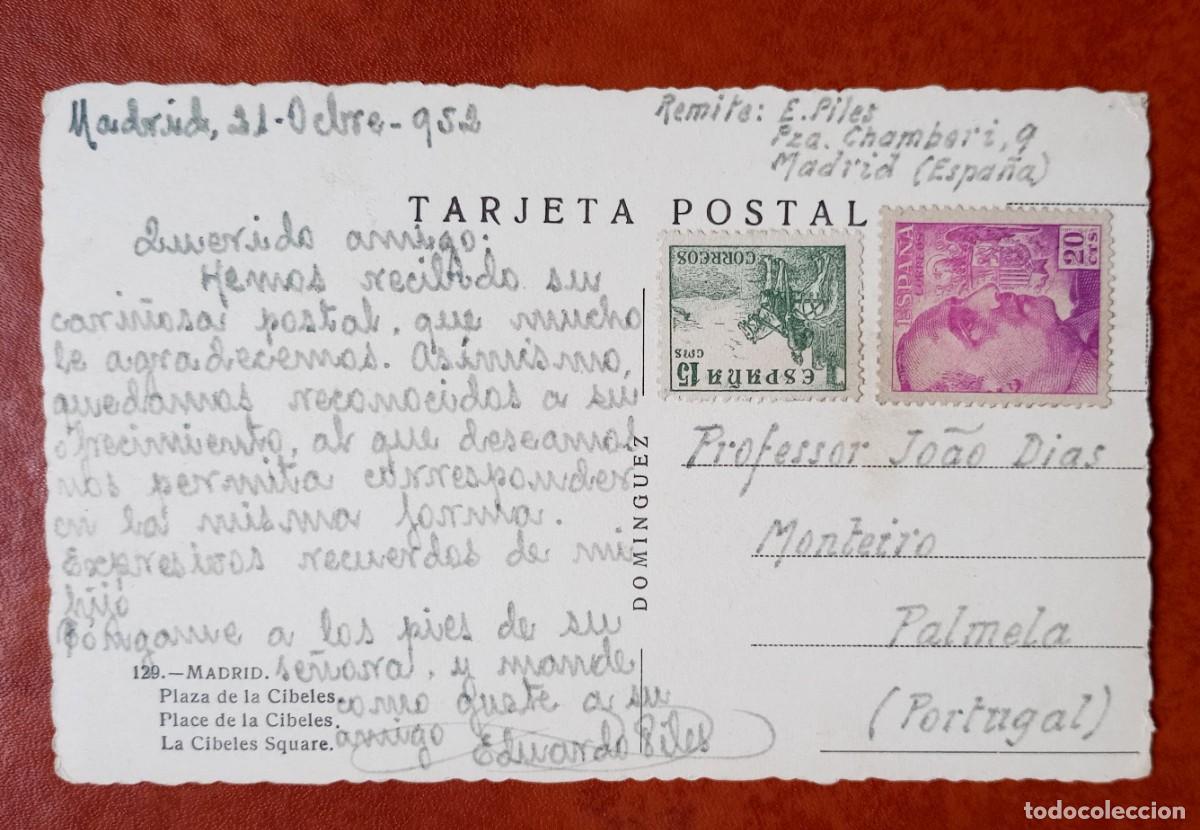 Madrid, 21-Octbre-952
Remite: E. Piles
Pza. Chamberi, 9
Madrid (España)
TARJETA POSTAL
Querido amigo:
Hemos recibido su
cariñosa postal, que mucho
le agradecemos. Asimismo,
quedamos reconocidos a su
ofrecimiento, al que deseamos
nos permita corresponder
en la misma forma.
Expresivos recuerdos de mi
hijo
Póngame a los pies de su
señora, y mande
como guste a su
amigo Eduardo Piles
129.—MADRID.
Plaza de la Cibeles.
Place de la Cibeles.
La Cibeles Square.
DOMINGUEZ
CORREOS
15 CTS
ESPAÑA
ESPAÑA
CORREOS
20 CTS
Professor João Dias
Monteiro
Palmela
(Portugal)
todocoleccion